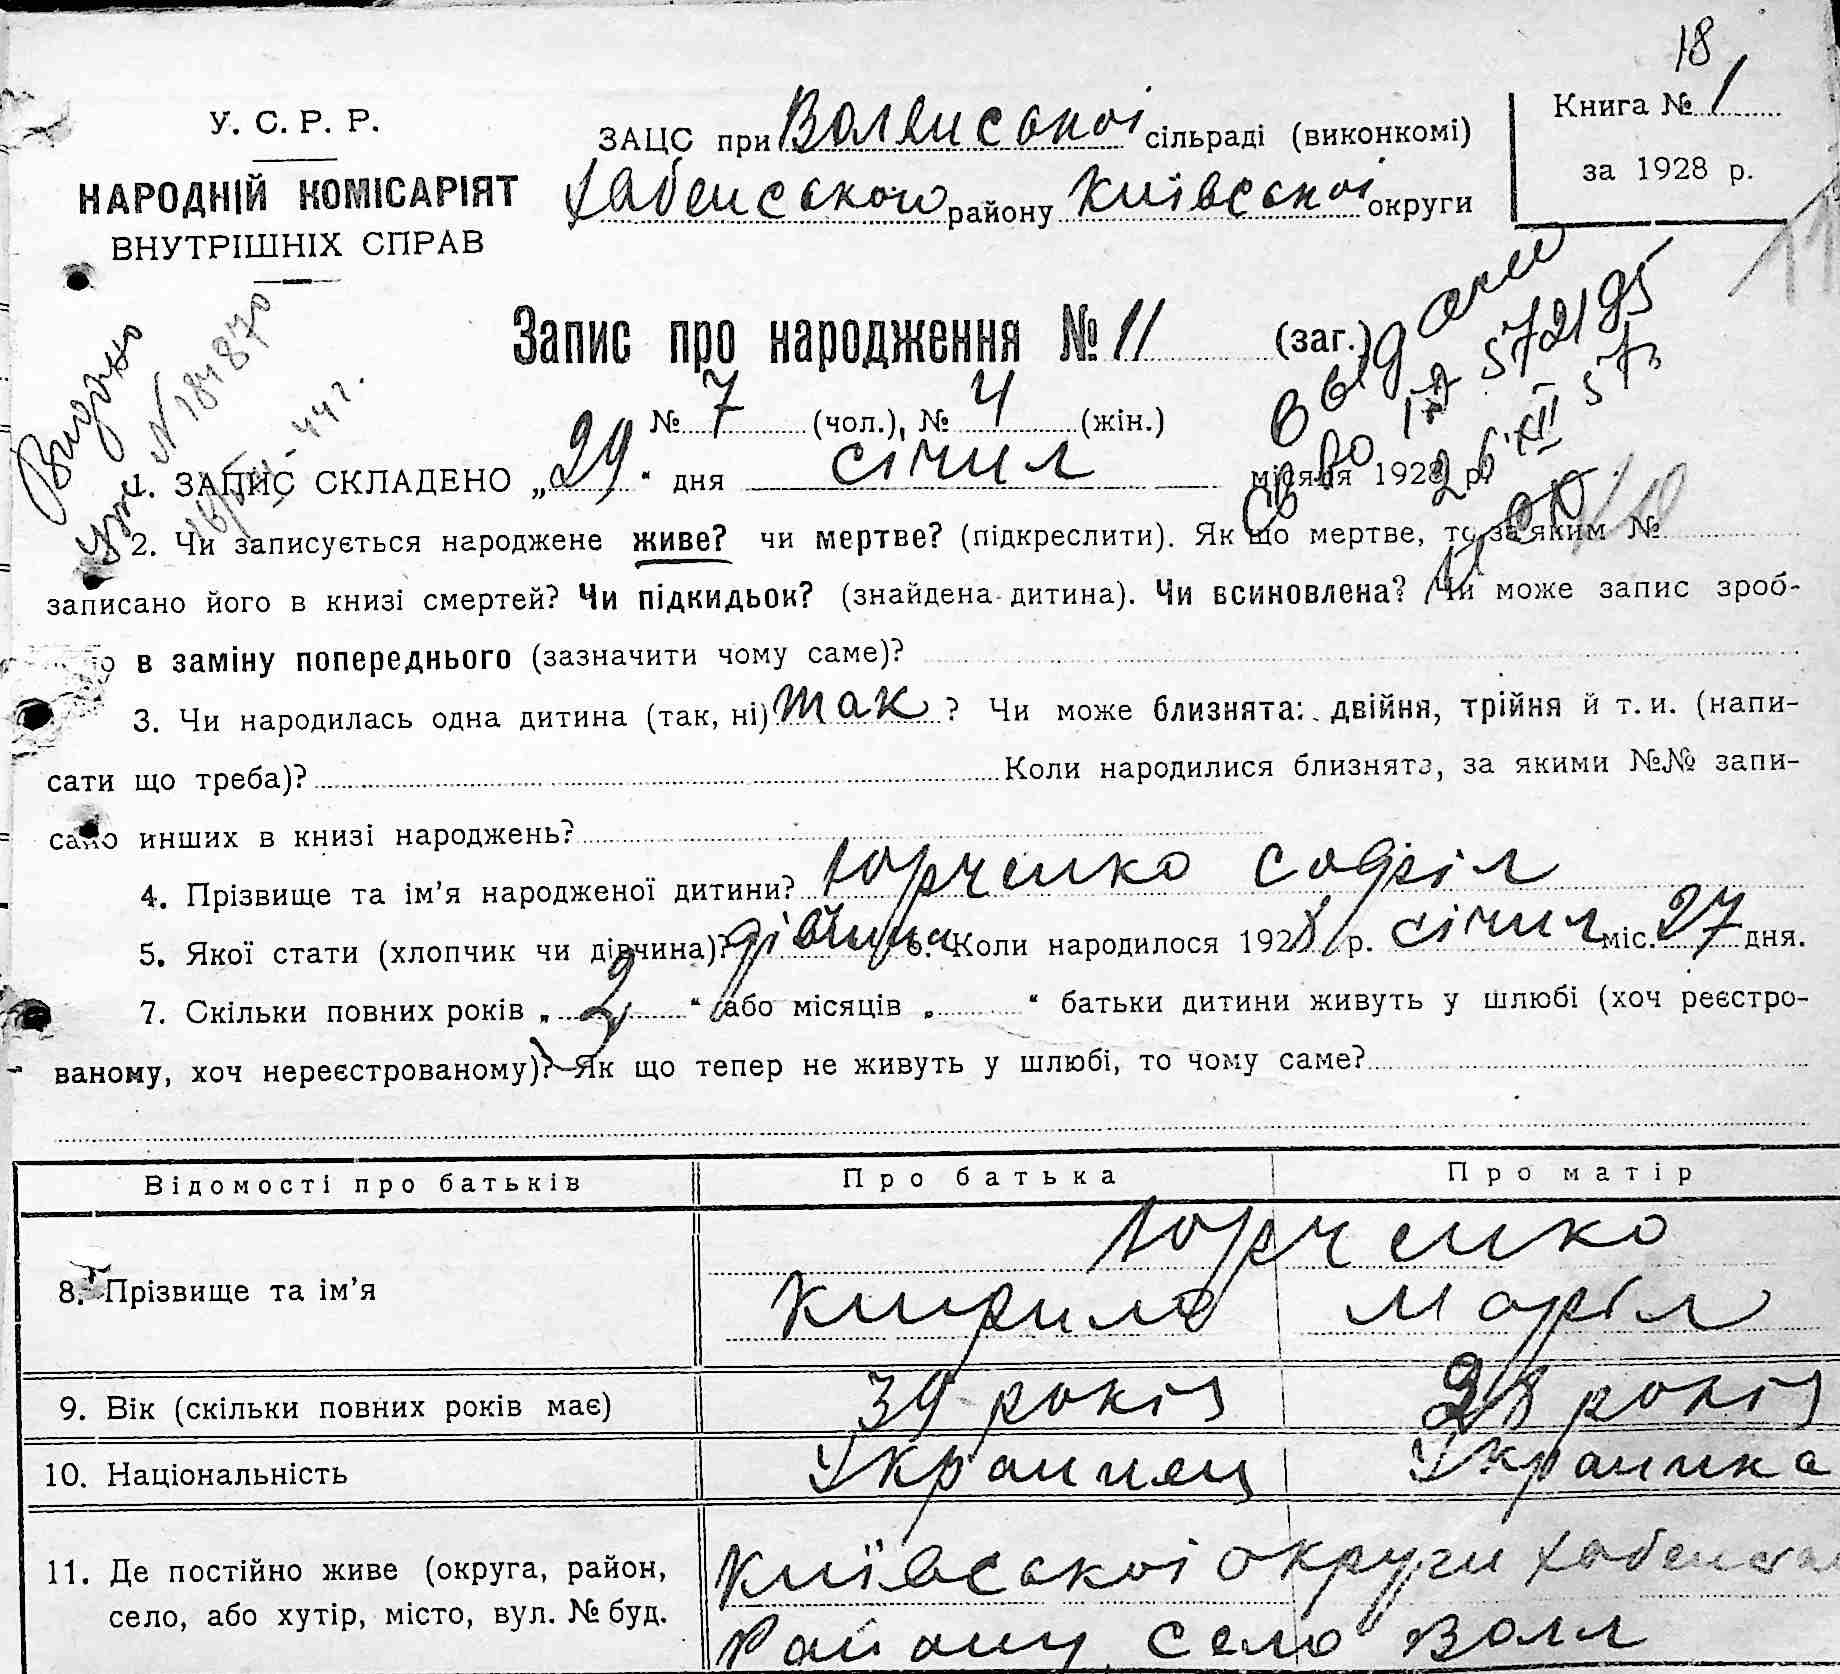 18
У. С. Р. Р.
НАРОДНІЙ КОМІСАРІЯТ
ВНУТРІШНІХ СПРАВ
ЗАЦС при Волянської сільраді (виконкомі)
Хабенського району Київської округи
Книга № 1
за 1928 р.
Запис про народження № 11 (заг.)
№ 7 (чол.), № 4 (жін.)
Видано
N 184870
44 г.
выдан
572195
26 XII 57
1. ЗАПИС СКЛАДЕНО „29“ дня січня місяця 1928 р.
2. Чи записується народжене живе? чи мертве? (підкреслити). Як що мертве, то за яким №
записано його в книзі смертей? Чи підкидьок? (знайдена дитина). Чи всиновлена? Чи може запис зроб-
о в заміну попереднього (зазначити чому саме)?
3. Чи народилась одна дитина (так, ні) так ? Чи може близнята: двійня, трійня й т. и. (напи-
сати що треба)? Коли народилися близнята, за якими №№ запи-
сано инших в книзі народжень?
4. Прізвище та ім’я народженої дитини? Юрченко Софія
5. Якої стати (хлопчик чи дівчина)? дівчина 6. Коли народилося 1928 р. січня міс. 27 дня.
7. Скільки повних років „2“ або місяців „ “ батьки дитини живуть у шлюбі (хоч реєстро-
ваному, хоч нереєстрованому)? Як що тепер не живуть у шлюбі, то чому саме?
Відомості про батьків Про батька Про матір
8. Прізвище та ім’я Юрченко
Кирило Марія
9. Вік (скільки повних років має) 39 років 28 років
10. Національність Украинец Украинка
11. Де постійно живе (округа, район, Київської округи Хабенська
село, або хутір, місто, вул. № буд. Району село Воля